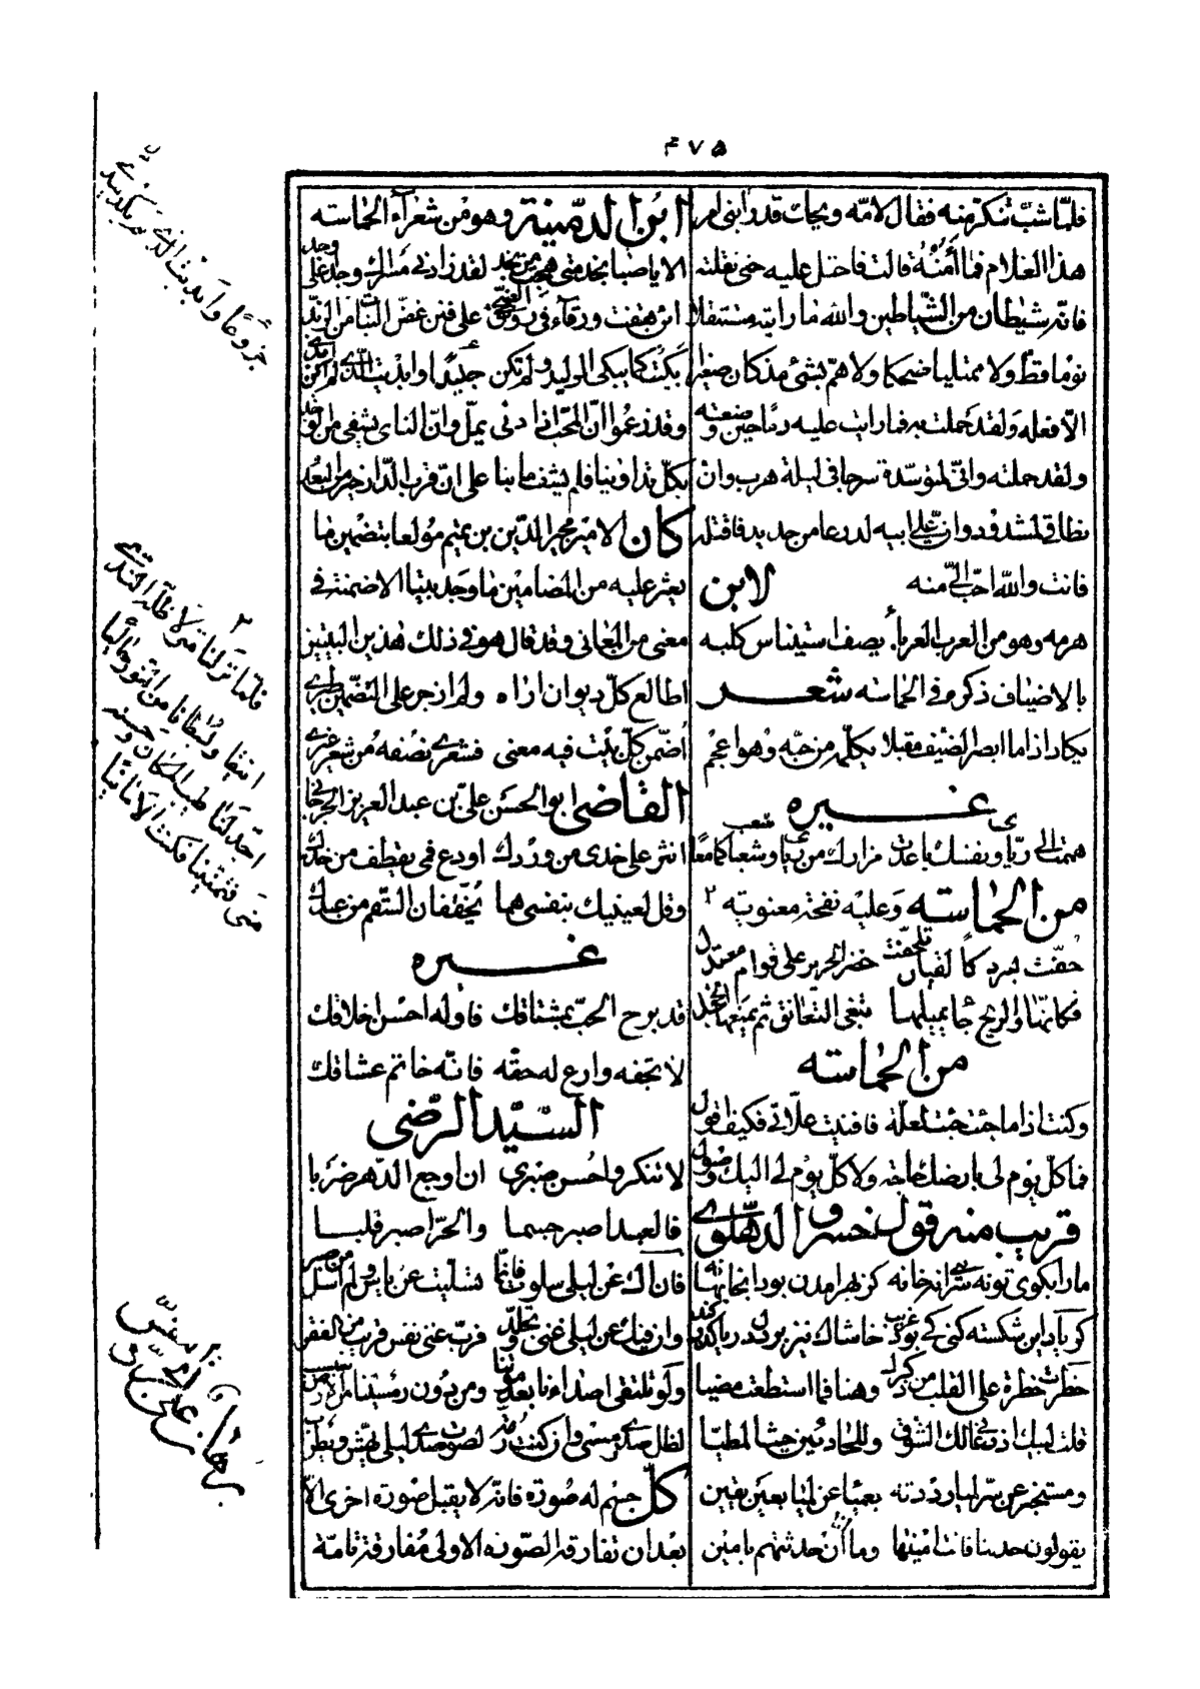 ٤٧٥
فلمّا شبّ تنكّر منه فقال لامّه ويحك قد رابنى امر
هذا الغلام فما آمَنُهُ قالت فاحتل عليه حتى تقتله
فانّه شيطان من الشّياطين والله ما رايته مستثقلا
نوما قطّ ولا ممتليا ضحكا ولا همّ بشئ مذ كان صغيرا
الّا فعله ولقد حملت به فما رايت عليه دمًا حين وضعته
ولقد حملته وانّى لمتوسّدة سرجا فى ليلة هرب وان
نطاقى لمشدود وان على ابيه لدرعا من حديد فاقتله
فانت والله احبّ الىّ منه لابن
هرمه وهو من العرب العرباء يصف استيناس كلبه
بالاضياف ذكره فى الحماسه شعر
يكاد اذا ما ابصر الضيف مقبلا يكلّمه من حبّه وهو اعجم
غيره
من الحماسته وعليه نفحة معنويه ٢
حُفّت بسرو كالقيان تلحّفت خضر الحرير على قوام معتدل
فكانّها والريح جا يميلها تبغى التعانق ثم يمنعها الخجل
من الحماسته
وكنت اذا ما جئت جئت لعلّة فافنيت علّاتى فكيف اقول
فما كلّ يوم لى بارضك حاجة ولا كلّ يوم لى اليك وصول
قريب منه قول خسرو الدهلوى
خطرت خطرة على القلب من ذكراك وهنا فما استطعت مضيا
قلت لبيك اذ دعانى لك الشوق وللحاديين حثا المطيّا
ومستخبر عن سرّ ليلى رددته بعمياء عن ليلى بعين يقين
يقولون حدثنا فانت امينها وما انا ان حدثتهم بامين
ابن الدمّينة وهو من شعرآء الحماسته
الا يا صبا نجد متى هجت من نجد لقد زادنى مسراك وجدا على وجد
ائن هتفت ورقآء فى رونق الضحى على فنن غضّ النبات من الرند
بكت كما يبكى الوليد ولم تكن جليدًا وابديت الذى لم تكن تبدى
وقد زعموا انّ المحبّ اذا دنى يملّ وانّ الناى يشفى من الوجد
بكلّ تداوينا فلم يشف ما بنا على انّ قرب الدّار خير من البعد
كان الامير مجير الدّين بن تميم مولعا بتضمين ما
يعثر عليه من المضامين ما وجد بيتا الا ضمنه فى
معنى من المعانى وقد قال هو فى ذلك هذين البيتين
اطالع كلّ ديوان اراه ولم ازجر على التضمين طيرى
اُضمّن كلّ بيت فيه معنى فشعرى نصفه من شعر غيرى
القاضى ابو الحسن علىّ بن عبد العزيز الجرجانى
انثر على خدى من وردك اودع فمى يقطف من خدك
وقل لعينيك بنفسى هما يُخفّفان السّقم من عبدك
غيره
قد برح الحبّ بمشتاقك فاوله احسن اخلاقك
لا تجفه وارع له حقّه فانّه خاتم عشاقك
السّيّد الرّضى
لا تنكروا حُسن صبرى ان اوجع الدّهر ضَربا
فالعبد اصبر جسما والحرّ اصبر قلبا
فان اك عن ليلى سلوت فانّما تسلّيت عن ياس ولم اسل من صبر
وان يك عن ليلى غنى وتجلّد فربّ غنى نفس قريب من الفقر
ولو تلتقى اصداءنا بعد موتنا ومن دون رمسينا من الارض سبسب
لظلّ صدى رمسى وان كنت رمّة لصوت صدى ليلى يهشّ ويطرب
كلّ جسم له صورة فانّه لا يقبل صورة اخرى الّا
بعد ان تفارقه الصّوره الاولى مُفارقة تامّة
٢
فلمّا نزلنا منزلا ظلّه الندى
انيقا وبُستانا من النور حاليًا
اجدّ لنا طيب المكان وحسنه
منى فتمنّينا فكنت الامانيا